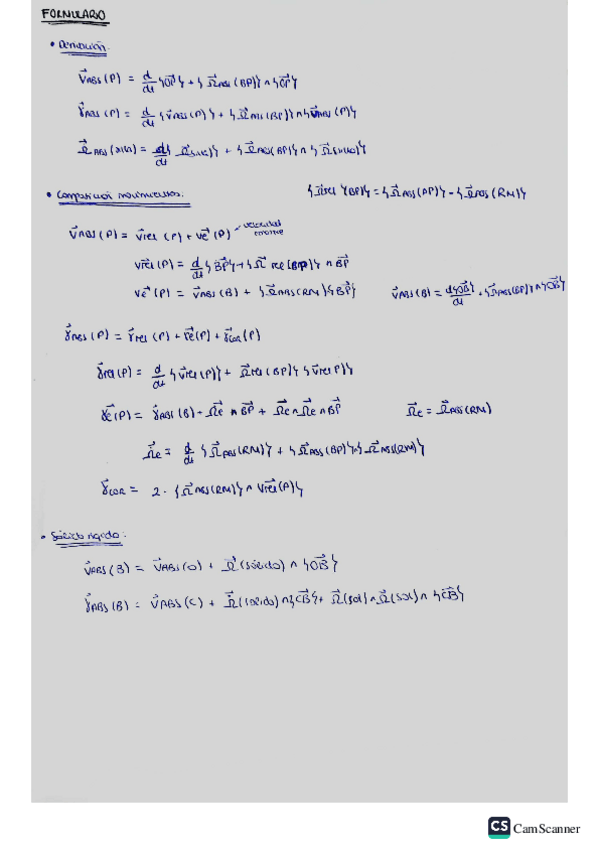 FORMULARIO
• Derivación.
v⃗ABS (P) = d/dt {OP⃗} + {Ω⃗ABS (BP)} ∧ {OP⃗}
γ⃗ABS (P) = d/dt {v⃗ABS(P)} + {Ω⃗ABS (BP)} ∧ {v⃗ABS (P)}
= d/dt + {Ω⃗ABS(BP)} ∧
• Composición movimientos. {Ω⃗rel (BP)} = {Ω⃗ABS(BP)} - {Ω⃗ABS (RM)}
v⃗ABS (P) = v⃗rel (P) + v⃗e (P) velocidad
v⃗rel (P) = d/dt {BP⃗} + {Ω⃗ rel (BP)} ∧ BP⃗
v⃗e (P) = v⃗ABS (B) + {Ω⃗ABS(RM)} {BP⃗} v⃗ABS (B) = d{OB⃗}/dt + {Ω⃗ABS(BP)} ∧ {OB⃗}
γ⃗ABS (P) = γ⃗rel (P) + γ⃗e(P) + γ⃗cor (P)
γ⃗rel (P) = d/dt {v⃗rel (P)} + Ω⃗rel (BP) {v⃗rel P)}
γ⃗e (P) = γ⃗ABS (B) - Ω⃗e ∧ BP⃗ + Ω⃗e ∧ Ω⃗e ∧ BP⃗ Ω⃗e = Ω⃗ABS (RM)
Ω⃗e = d/dt {Ω⃗ABS (RM)} + {Ω⃗ABS (BP)} ∧ {Ω⃗ABS(RM)}
γ⃗cor = 2 · {Ω⃗ABS (RM)} ∧ v⃗rel (P)}
• Sólido rígido.
v⃗ABS (B) = v⃗ABS (O) + Ω⃗ (sólido) ∧ {OB⃗}
γ⃗ABS (B) = v⃗ABS (C) + Ω⃗ (sólido) ∧ {CB⃗} + Ω⃗ (sol) ∧ Ω⃗ (sol) ∧ {CB⃗}
CS CamScanner